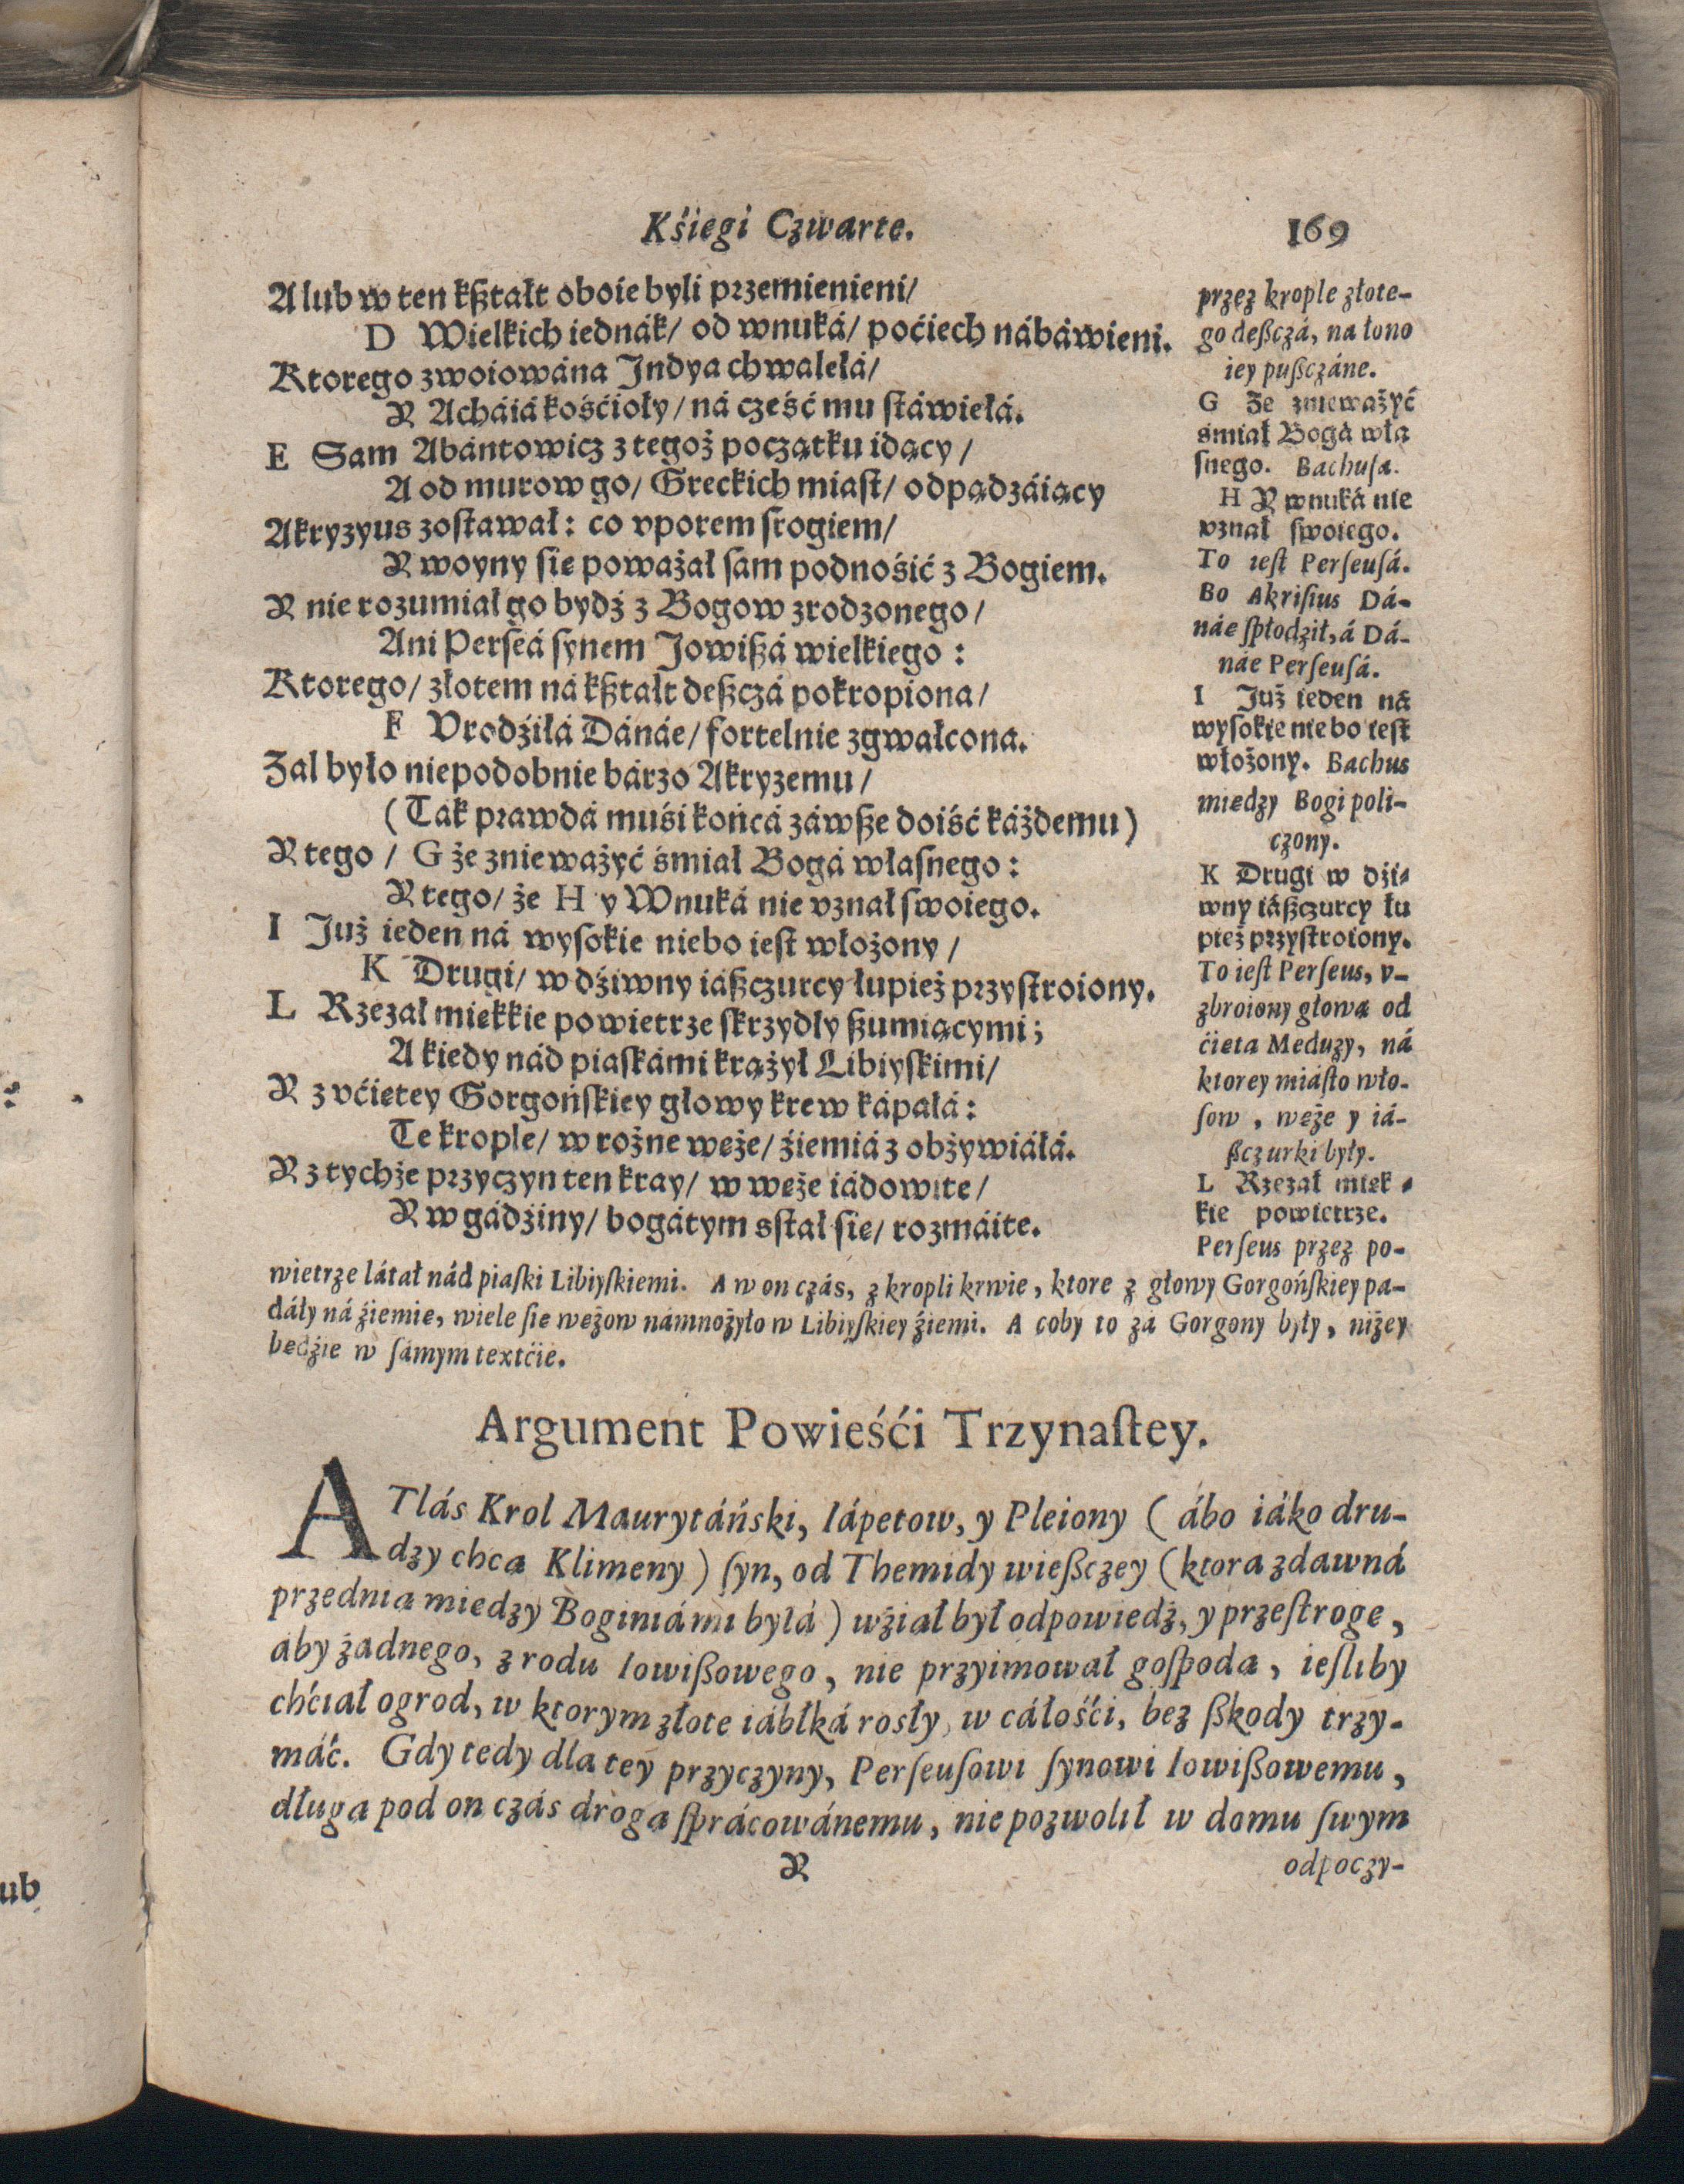 Kśiegi Czwarte.
169
A lub w ten kßtałt oboie byli przemienieni/
D Wielkich iednák/ od wnuká/ poćiech nábáwieni.
Ktorego zwoiowána Indya chwalełá/
Y Acháiá kośćioły/ ná cześć mu stáwiełá.
E Sam Abántowicz z tegoż początku idący/
A od murow go/ Greckich miast/ odpądzáiący
Akryzyus zostawał: co vporem srogiem/
Y woyny sie poważał sam podnośić z Bogiem.
Y nie rozumiał go bydź z Bogow zrodzonego/
Ani Perseá synem Jowißá wielkiego:
Ktorego/ złotem ná kßtałt deßczá pokropiona/
F Vrodźiłá Dánáe/ fortelnie zgwałcona.
Zal było niepodobnie bárzo Akryzemu/
(Ták prawdá muśi końcá záwße doiść káżdemu)
Y tego/ G że znieważyć śmiał Bogá własnego:
Y tego/ że H y Wnuká nie vznał swoiego.
I Już ieden ná wysokie niebo iest włożony/
K Drugi/ w dźiwny iáßczurcy łupież przystroiony.
L Rzezał miekkie powietrze skrzydły ßumiącymi;
A kiedy nád piaskámi krążył Libiyskimi/
Y z vćietey Gorgońskiey głowy krew kápáłá:
Te krople/ w rożne weże/ źiemiá z obżywiáłá.
Y z tychże przyczyn ten kray/ w weże iádowite/
Y w gádźiny/ bogátym sstał sie/ rozmáite.
przez krople złote-
go deßczá, na łono
iey pußczáne.
G Ze znieważyć
śmiał Bogá wła
snego. Bachusa.
H Y wnuká nie
vznał swoiego.
To iest Perseusá.
Bo Akrisius Dá-
náe spłodził, á Dá-
náe Perseusá.
I Już ieden ná
wysokie niebo iest
włożony. Bachus
miedzy Bogi poli-
czony.
K Drugi w dźi-
wny iáßczurcy łu
pież przystroiony.
To iest Perseus, v-
zbroiony głową od
ćieta Meduzy, ná
ktorey miásto wło-
sow, weże y iá-
ßczurki były.
L Rzezał miek-
kie powietrze.
Perseus przez po-
wietrze látał nád piaski Libiyskiemi. A w on czás, z kropli krwie, ktore z głowy Gorgońskiey pa-
dáły ná źiemie, wiele sie weżow námnożyło w Libiyskiey źiemi. A coby to zá Gorgony były, niżey
bedźie w sámym textćie.
Argument Powieśći Trzynastey.
ATlás Krol Maurytáński, Iápetow, y Pleiony (ábo iáko dru-
dzy chca Klimeny) syn, od Themidy wießczey (ktora zdawná
przednia miedzy Boginiámi byłá) wźiał był odpowiedź, y przestroge,
aby żadnego, z rodu Iowißowego, nie przyimował gospoda, iesliby
chćiał ogrod, w ktorym złote iábłká rosły, w cáłośći, bez ßkody trzy-
máć. Gdy tedy dla tey przyczyny, Perseusowi synowi Iowißowemu,
długa pod on czás droga sprácowánemu, nie pozwolił w domu swym
Y
odpoczy-
ub